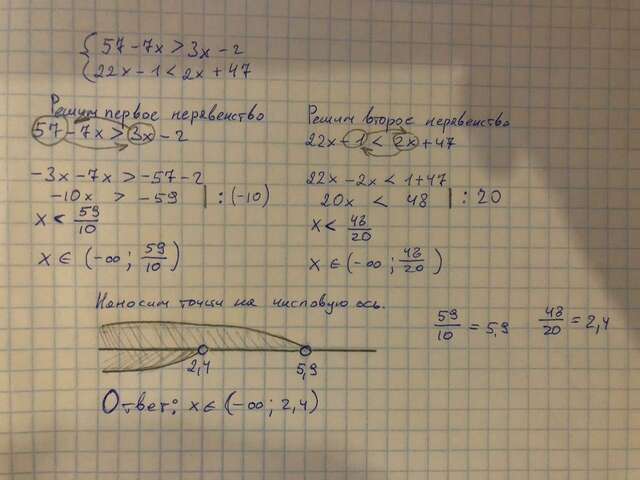 57-7x>3x-2
22x-1<2x+47
Решим первое неравенство
57-7x>3x-2
-3x-7x>-57-2
-10x > -59 | :(-10)
x < 59/10
x ∈ (-∞; 59/10)
Решим второе неравенство
22x-1<2x+47
22x-2x<1+47
20x < 48 | :20
x < 48/20
x ∈ (-∞; 48/20)
Наносим точки на числовую ось.
59/10 = 5,9
48/20 = 2,4
2,4
5,9
Ответ: x ∈ (-∞; 2,4)